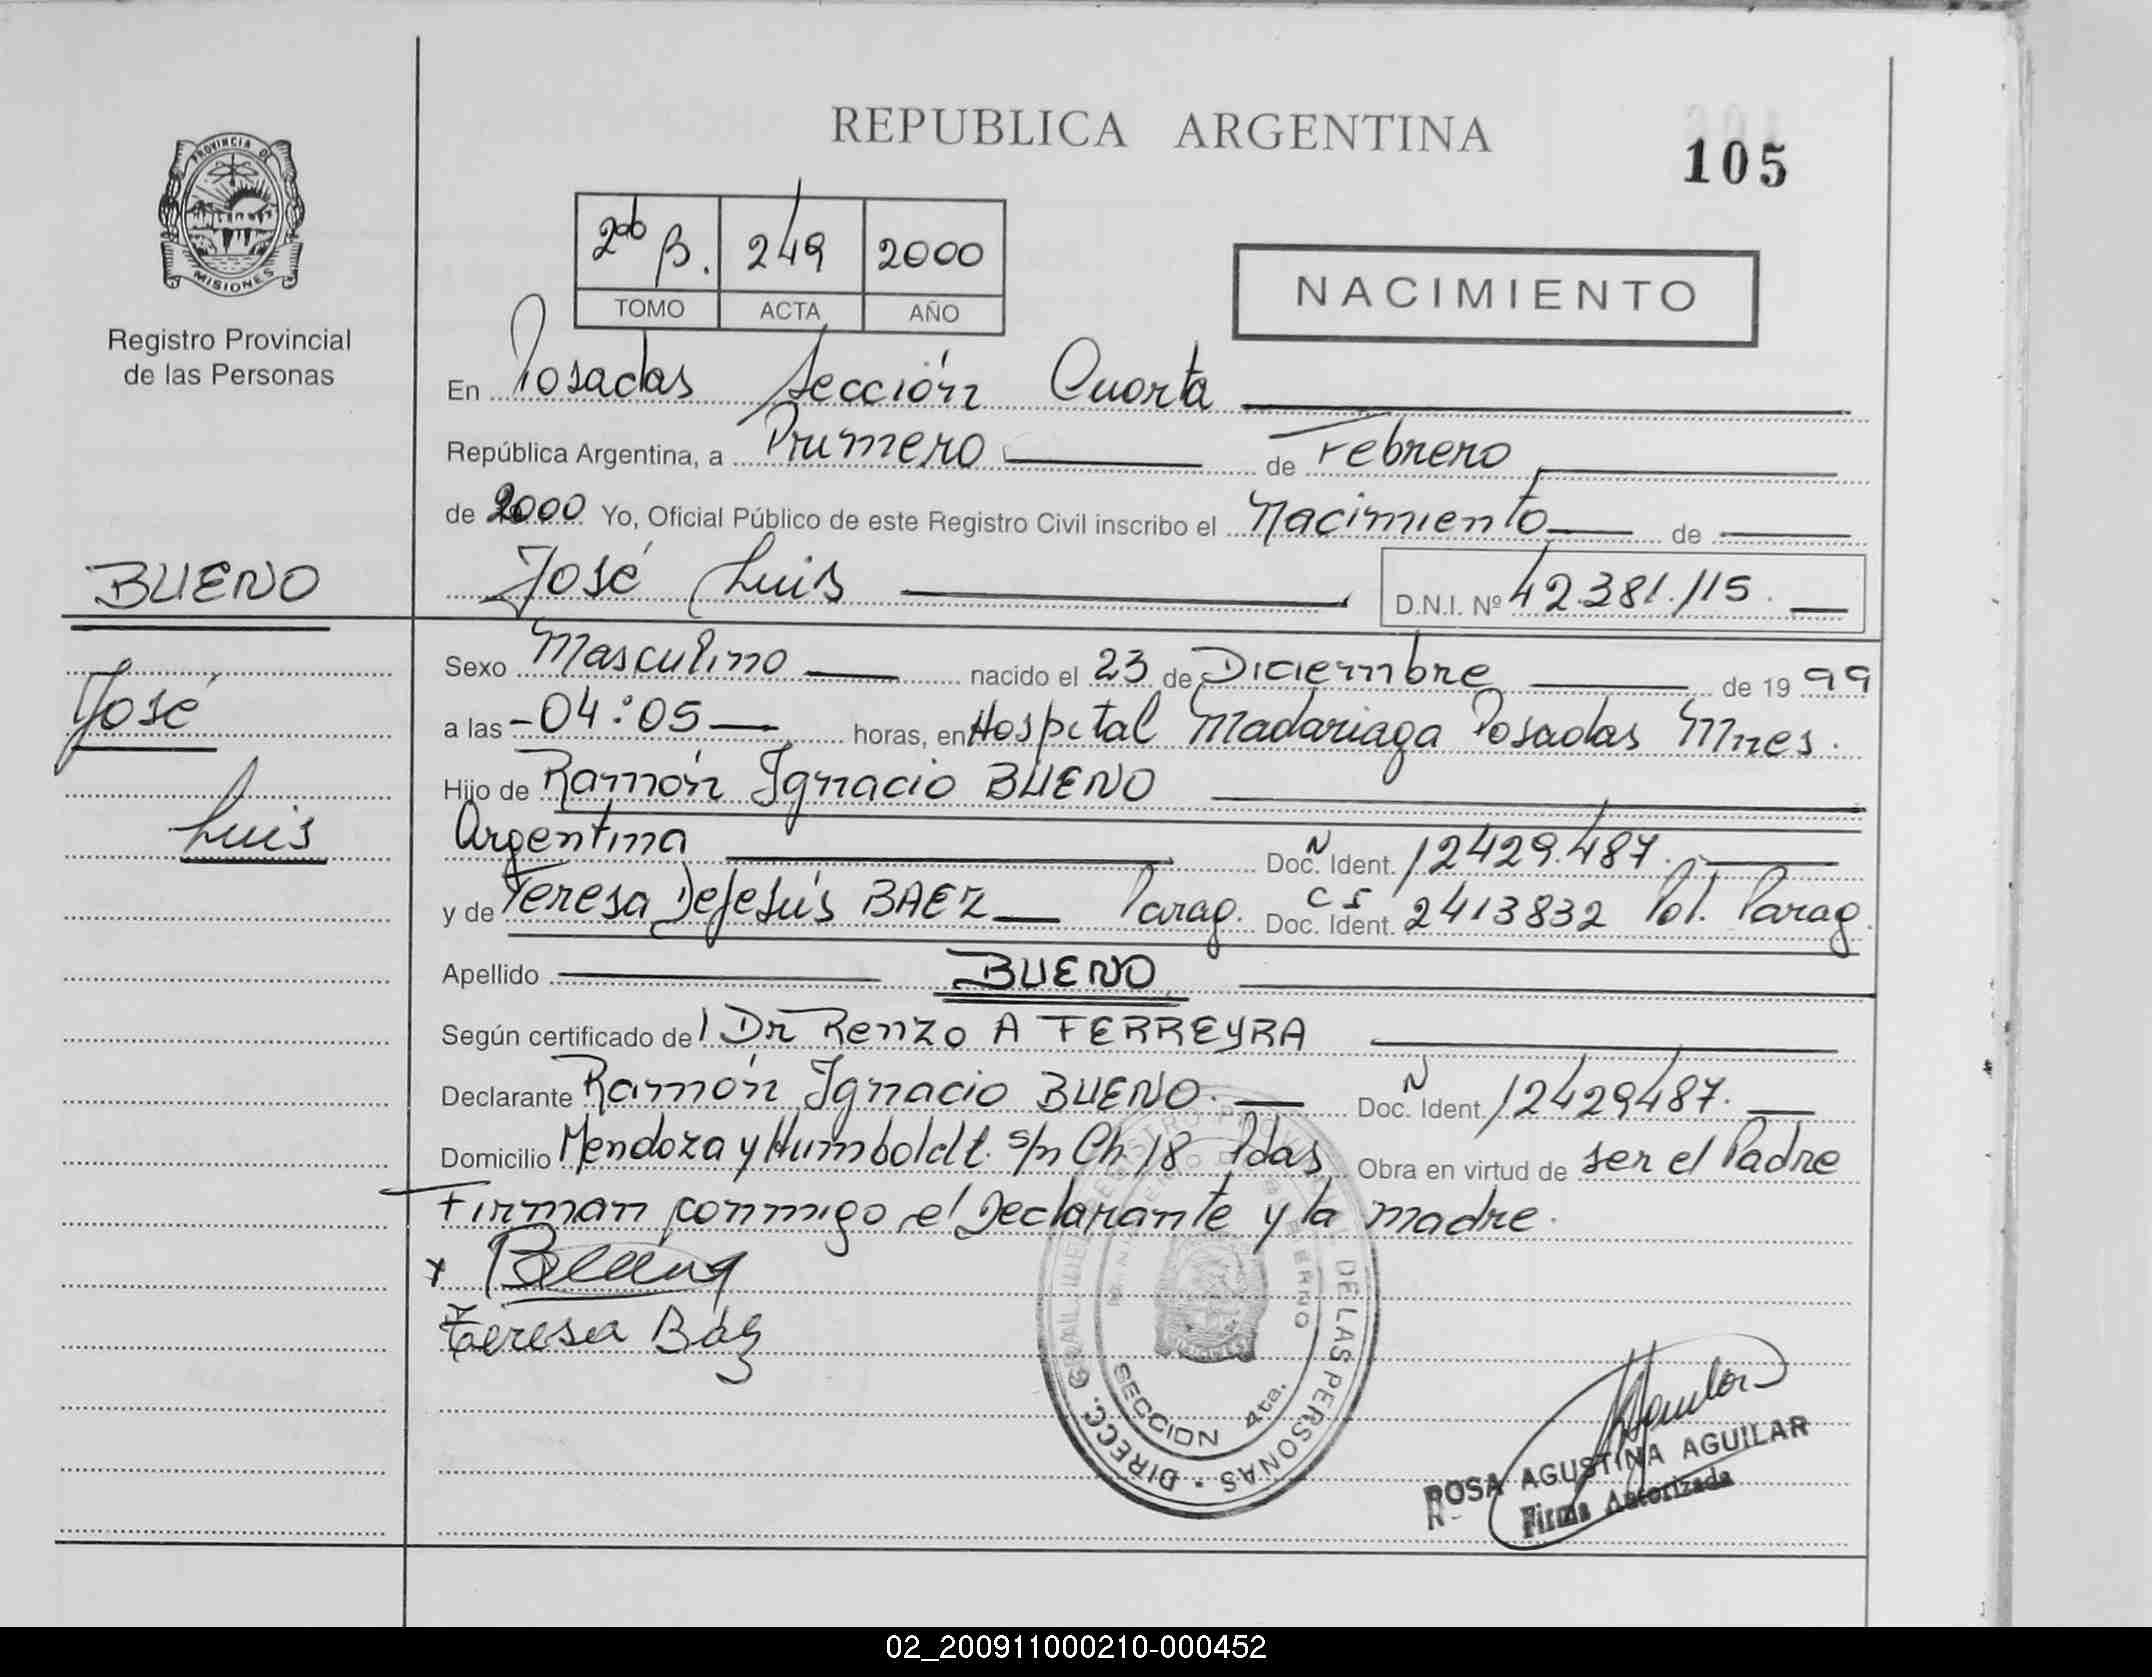 REPUBLICA ARGENTINA
105
PROVINCIA DE
MISIONES
Registro Provincial
de las Personas
2do B. 249 2000
TOMO ACTA AÑO
NACIMIENTO
En Posadas Sección Cuarta
República Argentina, a Primero de Febrero
de 2000 Yo, Oficial Público de este Registro Civil inscribo el Nacimiento de
BUENO
José Luis D.N.I. Nº 42.381.115.
José
Luis
Sexo Masculino nacido el 23 de Diciembre de 19 99
a las -04:05 horas, en Hospital Madariaga Posadas Mnes.
Hijo de Ramón Ignacio BUENO
Argentina Doc. N Ident. 12429.487.
y de Teresa DeJesús BAEZ Parag. Doc. C I Ident. 2413832 Pol. Parag.
Apellido BUENO
Según certificado del Dr Renzo A FERREYRA
Declarante Ramón Ignacio BUENO. Doc. N Ident. 12429487.
Domicilio Mendoza y Humboldt. s/n Ch. 18 Pdas Obra en virtud de ser el Padre
Firman conmigo el Declarante y la madre.
x
Teresa Báz
DIRECC. GRAL. DEL REGISTRO PROVINCIAL DE LAS PERSONAS
MINISTERIO DE GOBIERNO
SECCION 4ta.
ROSA AGUSTINA AGUILAR
Firma Autorizada
02_200911000210-000452